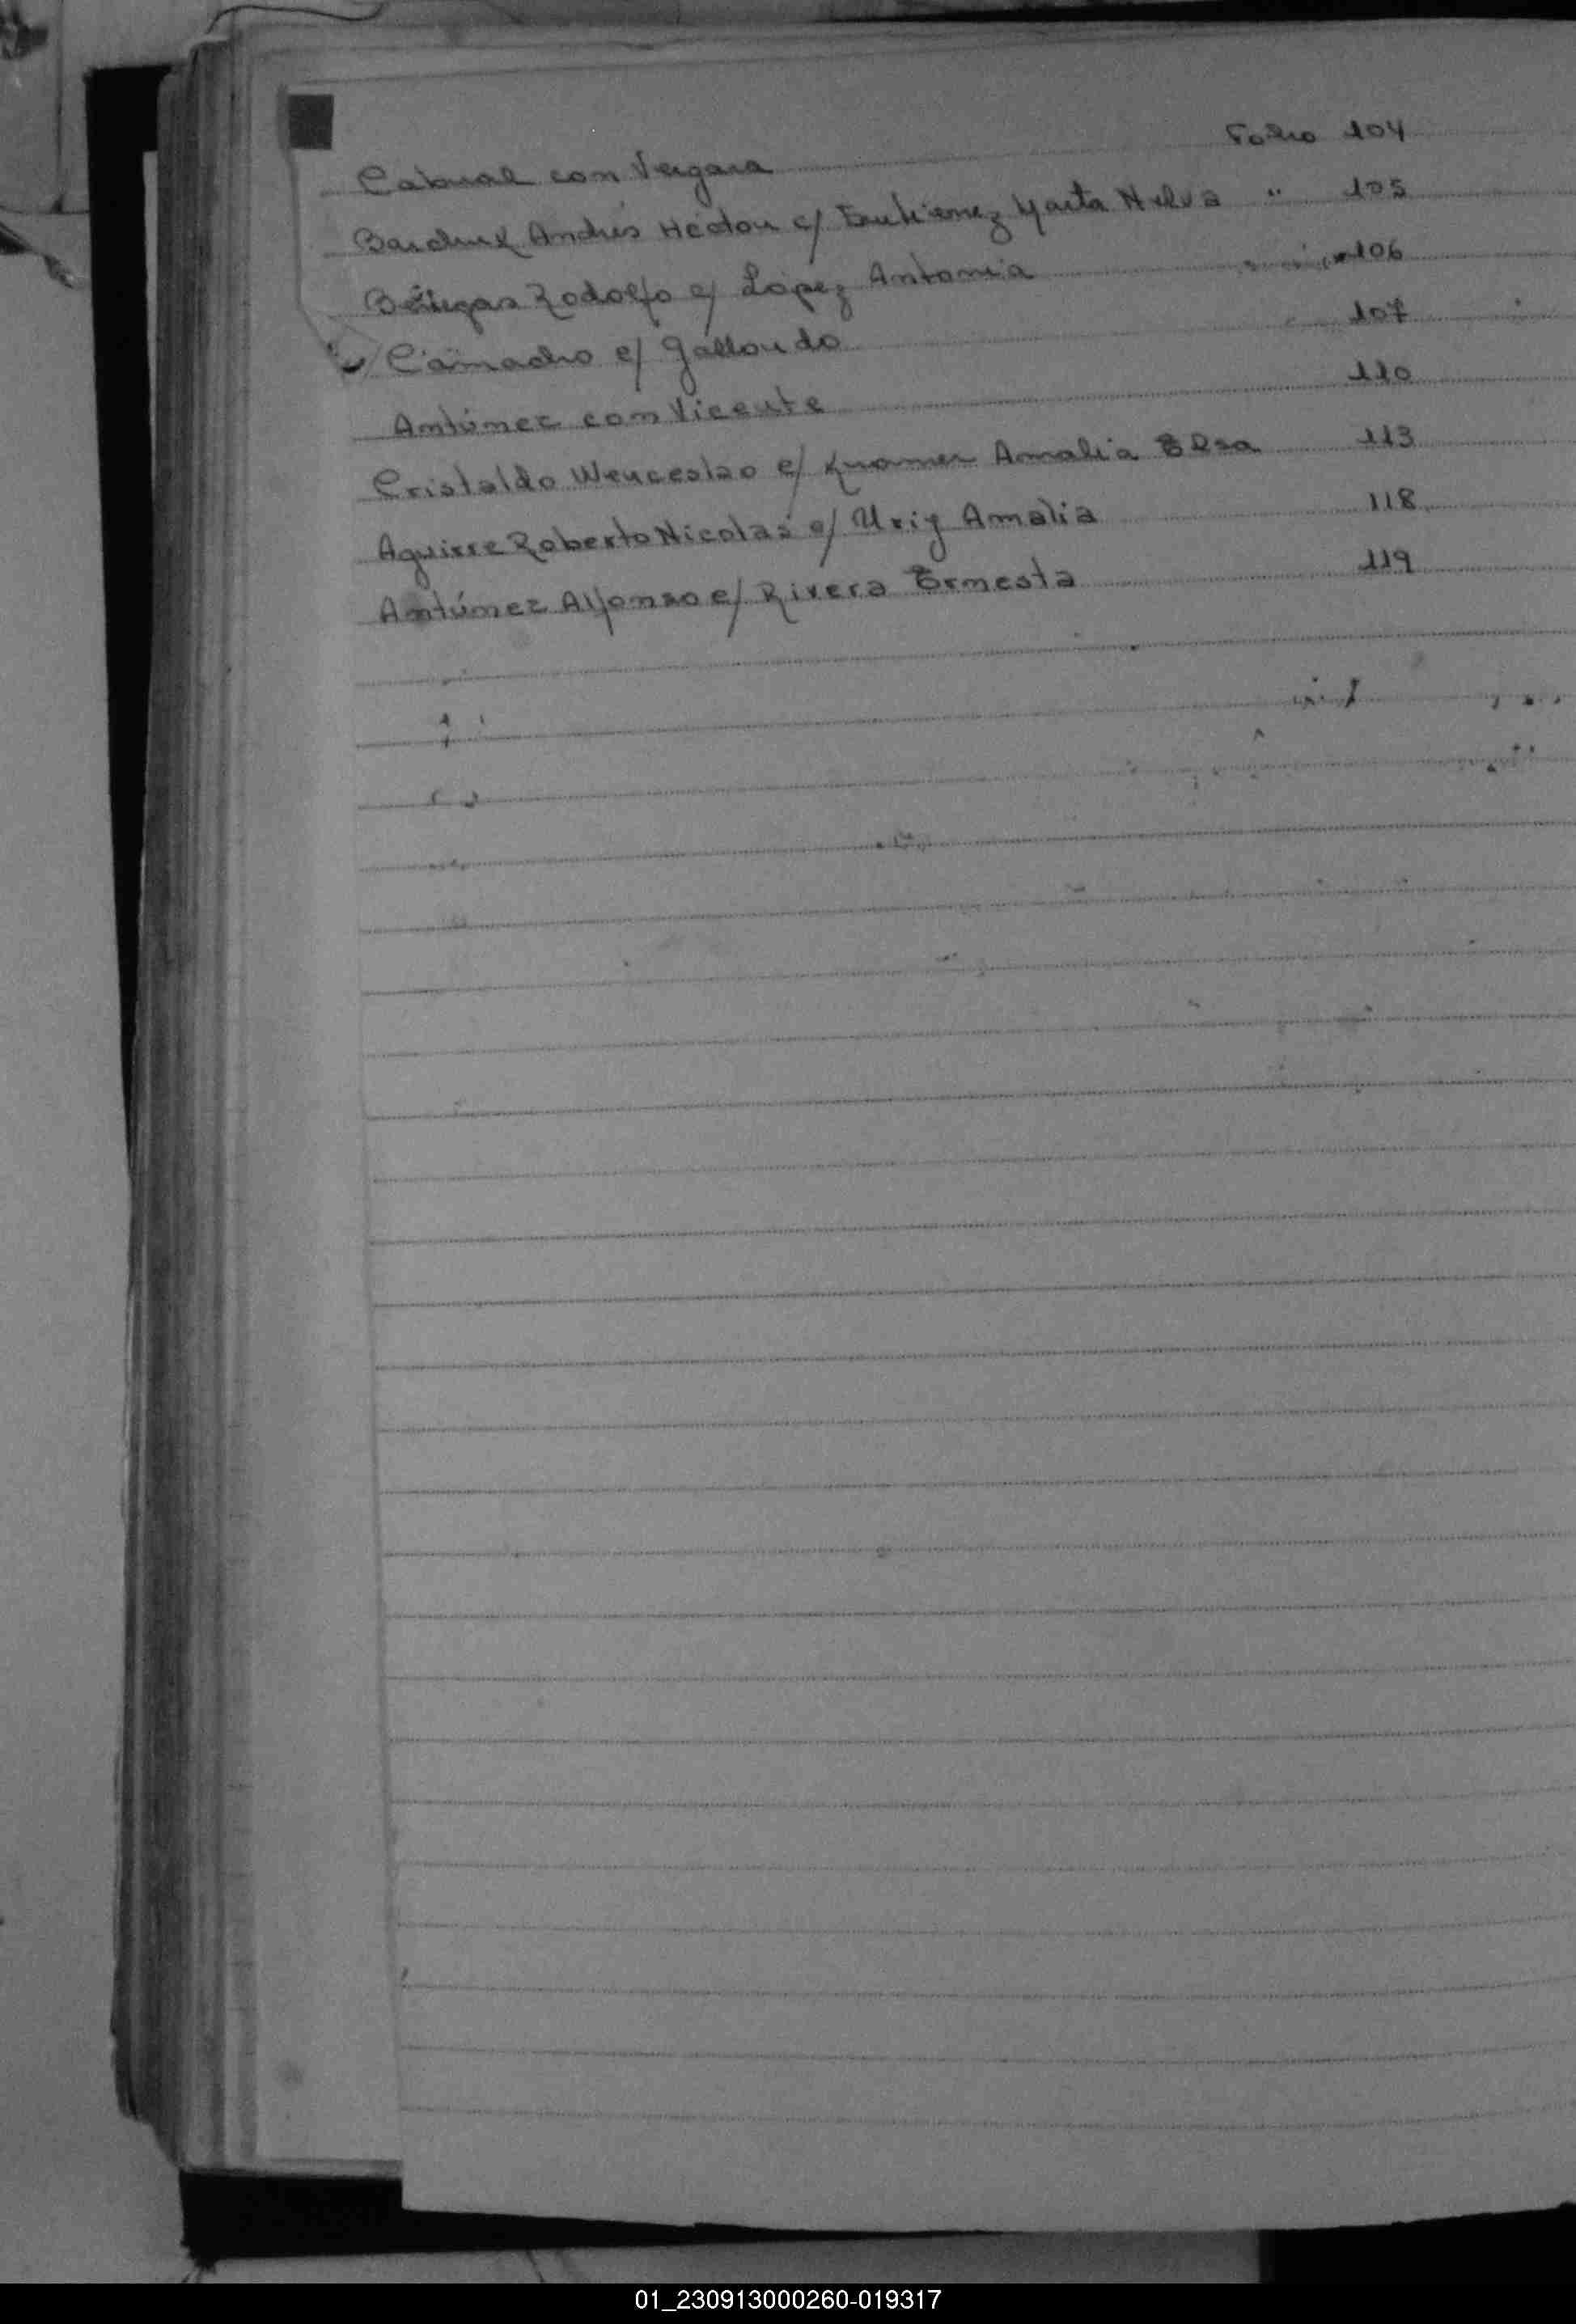 Cabral con Vergara Folio 104
Andrés Héctor c/ Marta Nelva " 105
Rodolfo c/ López Antonia " 106
Camacho c/ Gallardo 107
Antúnez con Vicente 110
Cristaldo Wenceslao c/ Kramer Amalia Elsa 113
Aguirre Roberto Nicolás c/ Amalia 118
Antúnez Alfonso c/ Rivera Ernesta 119
01_230913000260-019317